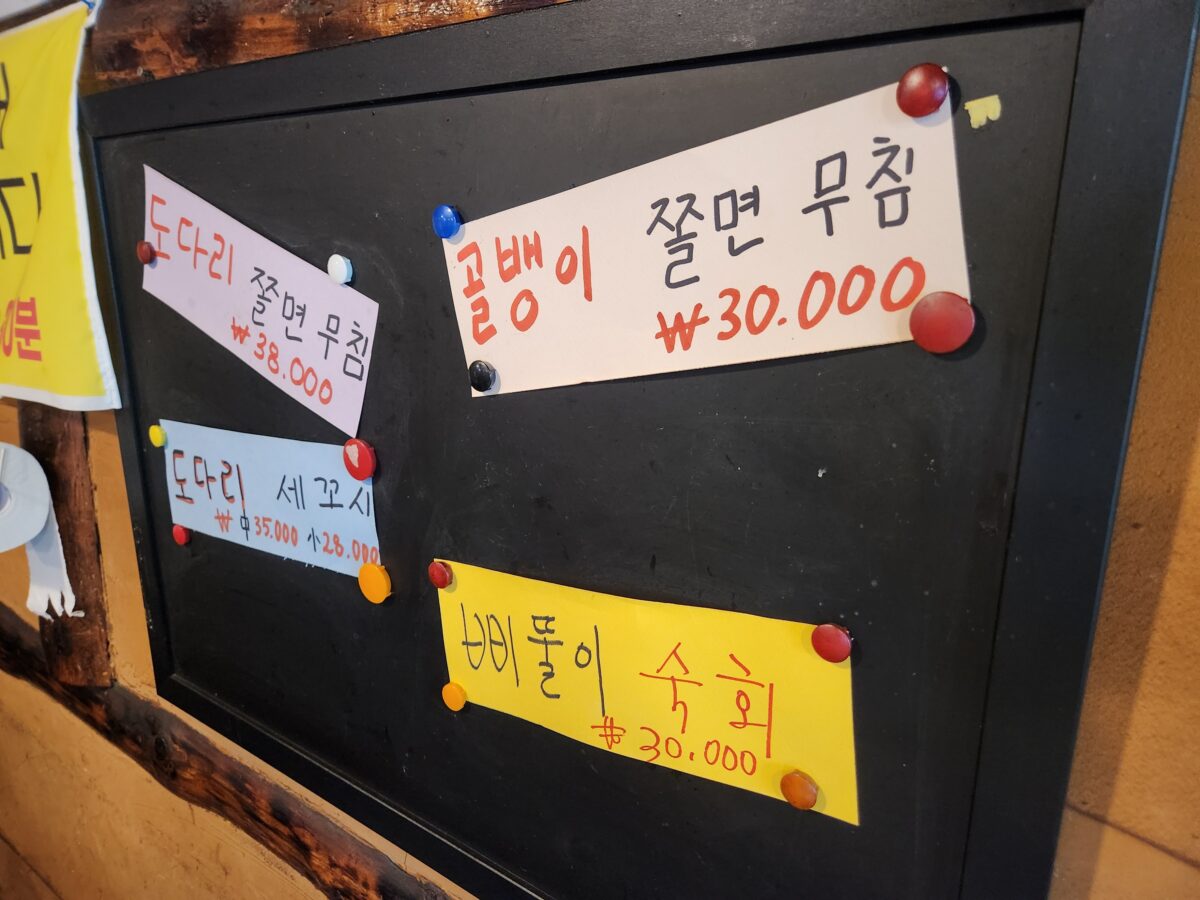 도다리 쫄면 무침
₩38.000
골뱅이 쫄면 무침
₩30.000
도다리 세꼬시
₩ 中35.000 小28.000
삐뚤이 숙회
₩30.000
0분